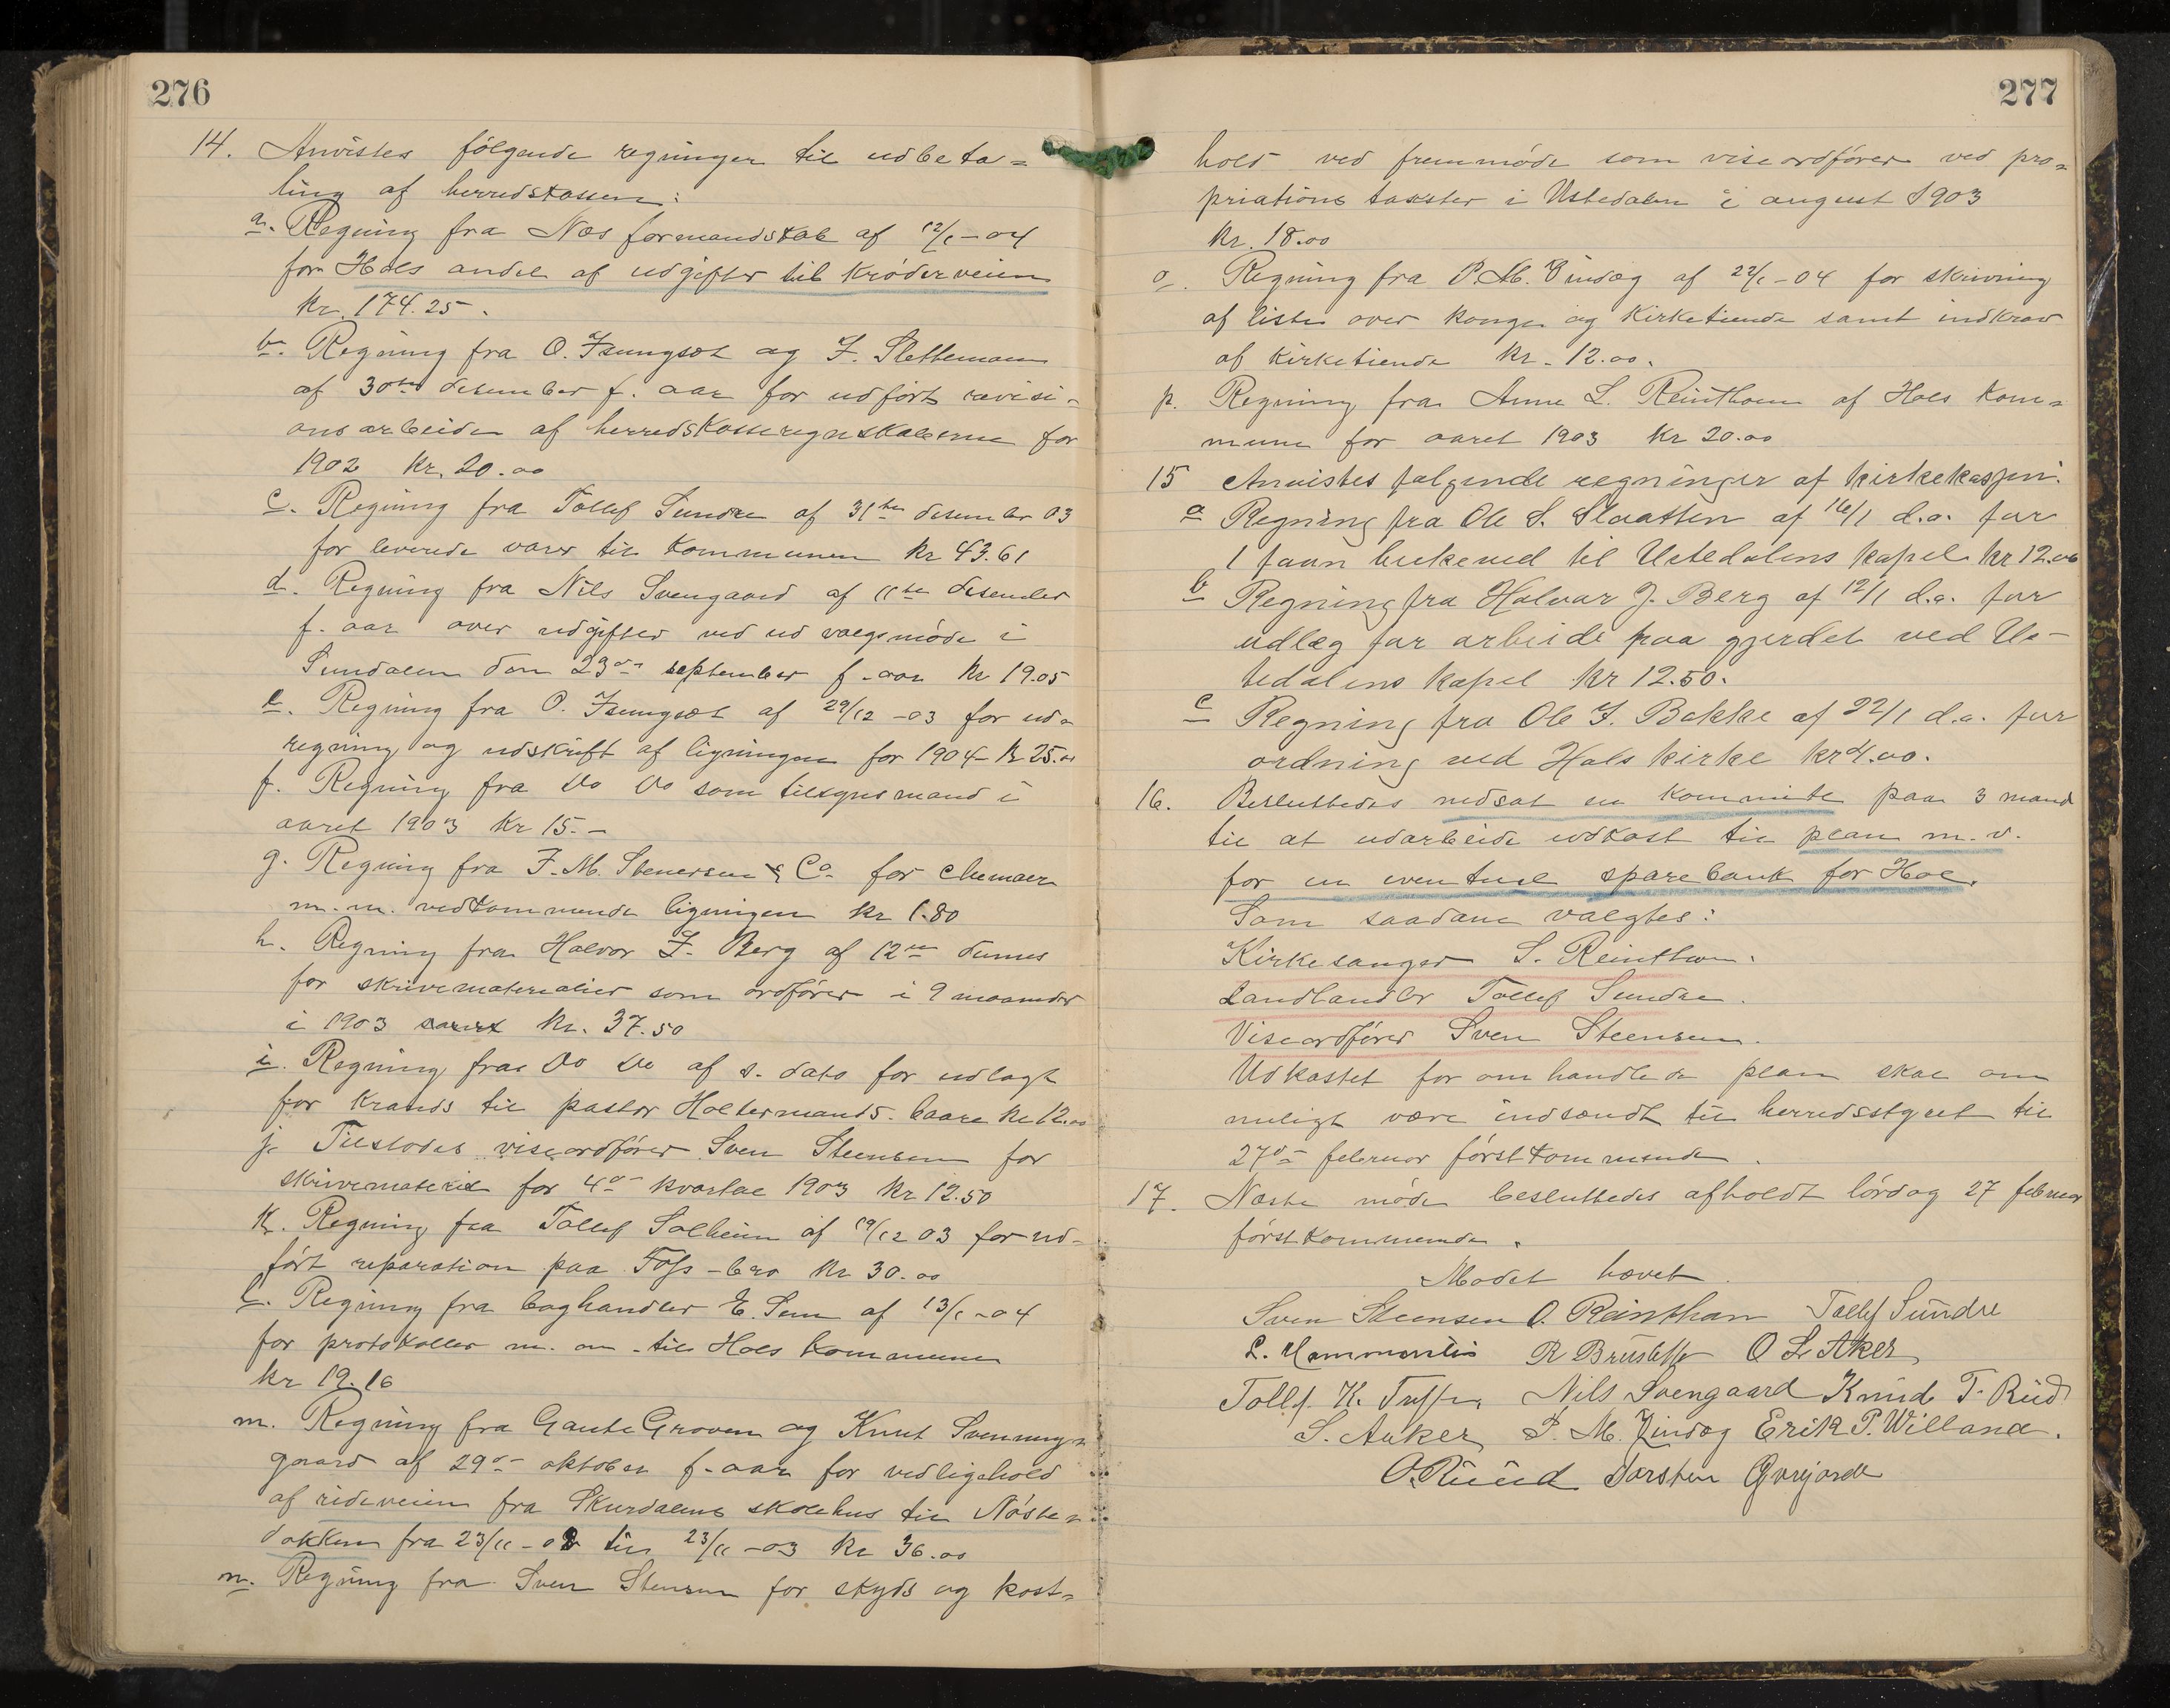 276
14. Anvistes følgende regninger til udbeta=
ling af herredskassen:
a. Regning fra Nes formandskab af 12/1 - 04
for Hols andel af udgifter til Krøderveien
kr. 174.25.
b. Regning fra O. og Slettemoen
af 30te desember f. aar for udført revisi=
ons arbeide af herredskasseregnskaberne for
1902 kr. 20.00
c. Regning fra Tollef Sundre af 31te desember 03
for leverede varer til kommunen kr 43.61
d. Regning fra Nils Svengaard af 11te desember
f. aar over udgifter ved ud valgsmøde i
Sundalen den 23de september f. aar kr 19.05
e. Regning fra O. af 29/12 - 03 for ud=
regning og udskrift af ligningen for 1904 - kr 25.00
f. Regning fra Do Do som tilsynsmand i
aaret 1903 kr 15.-
g. Regning fra J. M. Stenersen & Co. for
m. m. vedkommende ligningen kr 1.80
h. Regning fra Halvor J. Berg af 12te dennes
for skrivematerialier som ordfører i 9 maaneder
i 1903 kr. 37.50
i. Regning fra Do Do af s. dato for udlagt
for krands til pastor Holtermands baare kr 12.00
j. Tilstodes viseordfører Sven Steensen for
skrivemateriel for 4de kvartal 1903 kr 12.50
k. Regning fra Tollef Solheim af 19/12 03 for ud=
ført reparation paa Foss-bro kr 30.00
l. Regning fra boghandler E. Sem af 13/1 - 04
for protokoller m. m. til Hols kommune
kr 19.16
m. Regning fra Gaute Groven og Knut Svennings=
gaard af 29de oktober f. aar for vedligehold
af rideveien fra Skurdalens skolehus til Nøste=
dokken fra 23/11 - 02 til 23/11 - 03 kr 36.00
n. Regning fra Sven Stensen for skyds og kost=
277
hold ved fremmøde som viseordfører ved pro=
priations taxster i Ustedalen i august 1903
kr. 18.00
o. Regning fra P. M. Tindog af 22/1 - 04 for skrivning
af liste over konge og kirketiende samt indkrav
af kirketiende kr. 12.00.
p. Regning fra Anne L. Reinthon af Hols kom=
mune for aaret 1903 kr 20.00
15 Anvistes følgende regninger af kirkekassen:
a Regning fra Ole S. Slaatten af 16/1 d.a. for
1 favn birkeved til Ustedalens kapel kr 12.00
b Regning fra Halvar J. Berg af 12/1 d.a. for
udlæg for arbeide paa gjerdet ved Us-
tedalens kapel kr 12.50.
c Regning fra Ole J. Bakke af 22/1 d.a. for
ordning ved Hols kirke kr 4.00.
16. Besluttedes nedsat en kommite paa 3 mand
til at udarbeide udkast til plan m. v.
for en eventuel sparebank for Hol.
Som saadane valgtes:
Kirkesanger S. Reinthon.
Landhandler Tollef Sundre.
Viseordfører Sven Steensen.
Udkastet for omhandlede plan skal om
muligt være indsendt til herredsstyret til
27de februar førstkommende.
17. Næste møde besluttedes afholdt lørdag 27 februar
førstkommende.
Mødet hævet.
Sven Steensen O. Reinthon Tollef Sundre
L. R Brusletto O L Aker
Tollf. K. Nils Svengaard Knud T. Rud
S. Auker P. M. Tindog Erik P. Willand.
O. Ruud Torsten